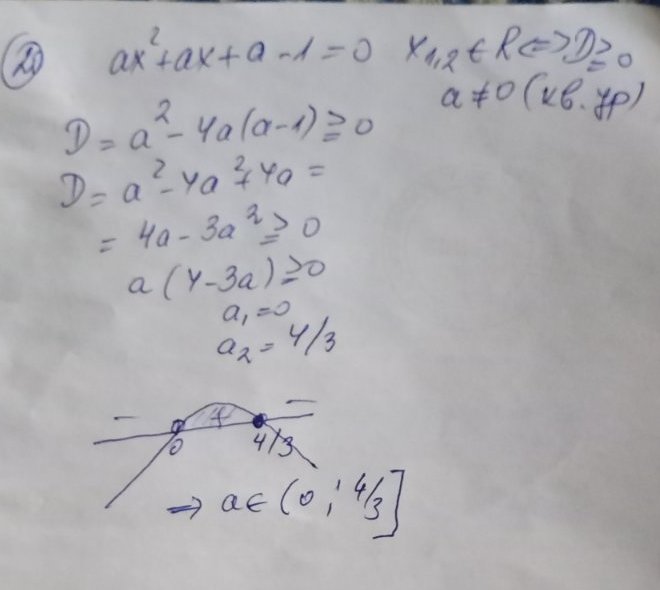 20 ax²+ax+a-1=0 x₁,₂ ∈ R ⇔ D≥0
a≠0 (кв. ур)
D = a² - 4a(a-1) ≥ 0
D = a² - 4a² + 4a =
= 4a - 3a² ≥ 0
a(4-3a) ≥ 0
a₁=0
a₂= 4/3
- + -
0 4/3
⇒ a ∈ (0; 4/3]